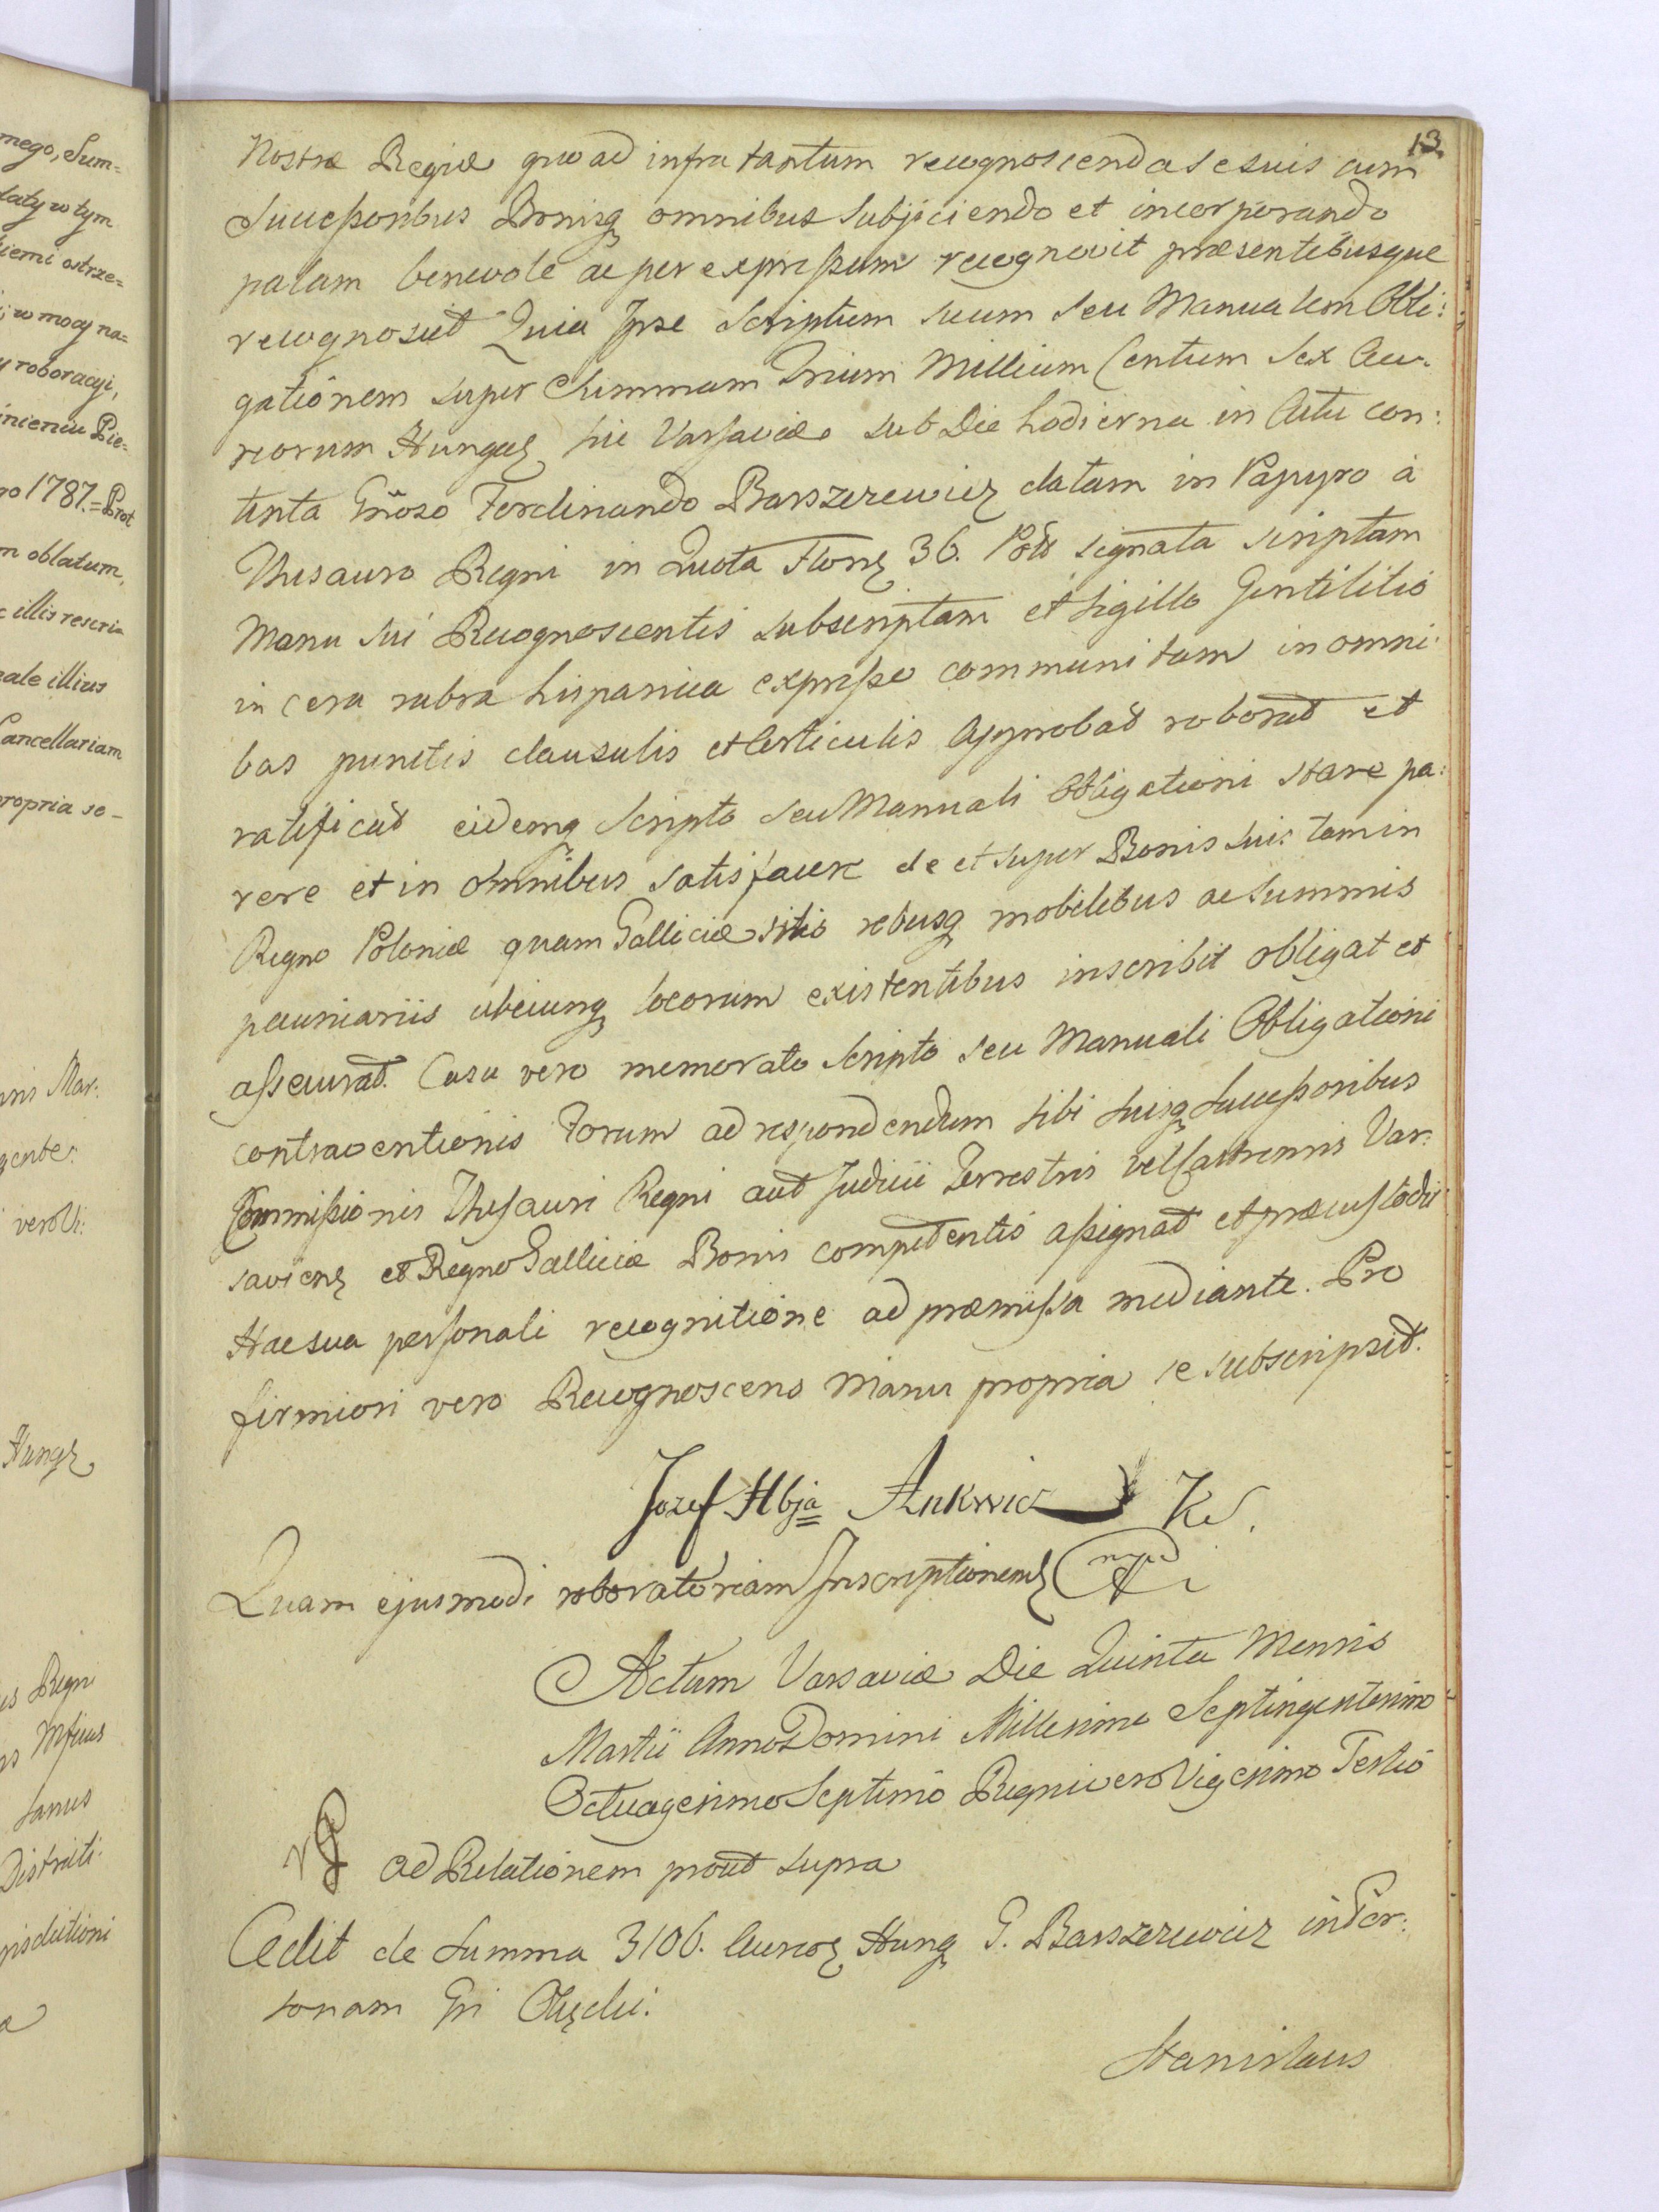 mego, Sum=
daty w tym
iemi ostrze=
w mocy na=
y roboracyi,
inieniu Pie=
ro 1787.=Prot
m oblatum,
c illis rescrip
nale illius
Cancellariam
propria se_
Mar:
vero Vi:
Hungz
Regni
Districti
13.
Nostræ Regiæ quo ad infra tantum recognoscenda se suis cum
Successoribus Bonisq omnibus subjiciendo et incorporando
palam benevole ac per expressum recognovit præsentibusque
recognoscit Quia Ipse Scriptum suum seu Manualem Obli:
gationem super Summam Trium Millium Centum Sex Au:
reorum Hungaz hic Varsaviæ sub Die hodierna in Actu con:
tenta Gñoso Ferdinando Barszczewicz datam in Papyro à
Thesauro Regni in Quota Florz 36. Polo signata scriptam
Manu sui Recognoscentis subscriptam et Sigillo Gentilitio
in cera rubra hispanica expresso communitam in omni:
bus punctis clausulis et Articulis Approbat roborat et
ratificat eidemq Scripto seu Manuali Obligationi stare pa:
rere et in omnibus satisfacere de et super Bonis suis tam in
Regno Poloniæ quam Galliciæ sitis rebusq mobilibus ac Summis
pecuniariis ubicunq locorum existentibus inscribit obligat et
assecurat. Casu vero memorato Scripto seu Manuali Obligationi
contraventionis Forum ad respondendum sibi suisq Successoribus
Commissionis Thesauri Regni aut Judicii Terrestris vel Castrensis Var:
saviens et Regno Galliciæ Bonis competentis assignat et præcustodit
Hac sua personali recognitione ad præmissa mediante. Pro
firmiori vero Recognoscens Manu propria se subscripsit.
Jozef Hbja Ankwicz KS.
Quam ejusmodi roboratoriam Inscriptionem
Actum Varsaviæ Die Quinta Mensis
Martii Anno Domini Millesimo Septingentesimo
Octuagesimo Septimo Regni vero Vigesimo Tertio
ad Relationem prout supra
Cedit de Summa 3106. Aureoz Hung G. Barszczewicz in Per:
sonam Gñi Olędzki:
Stanislaus